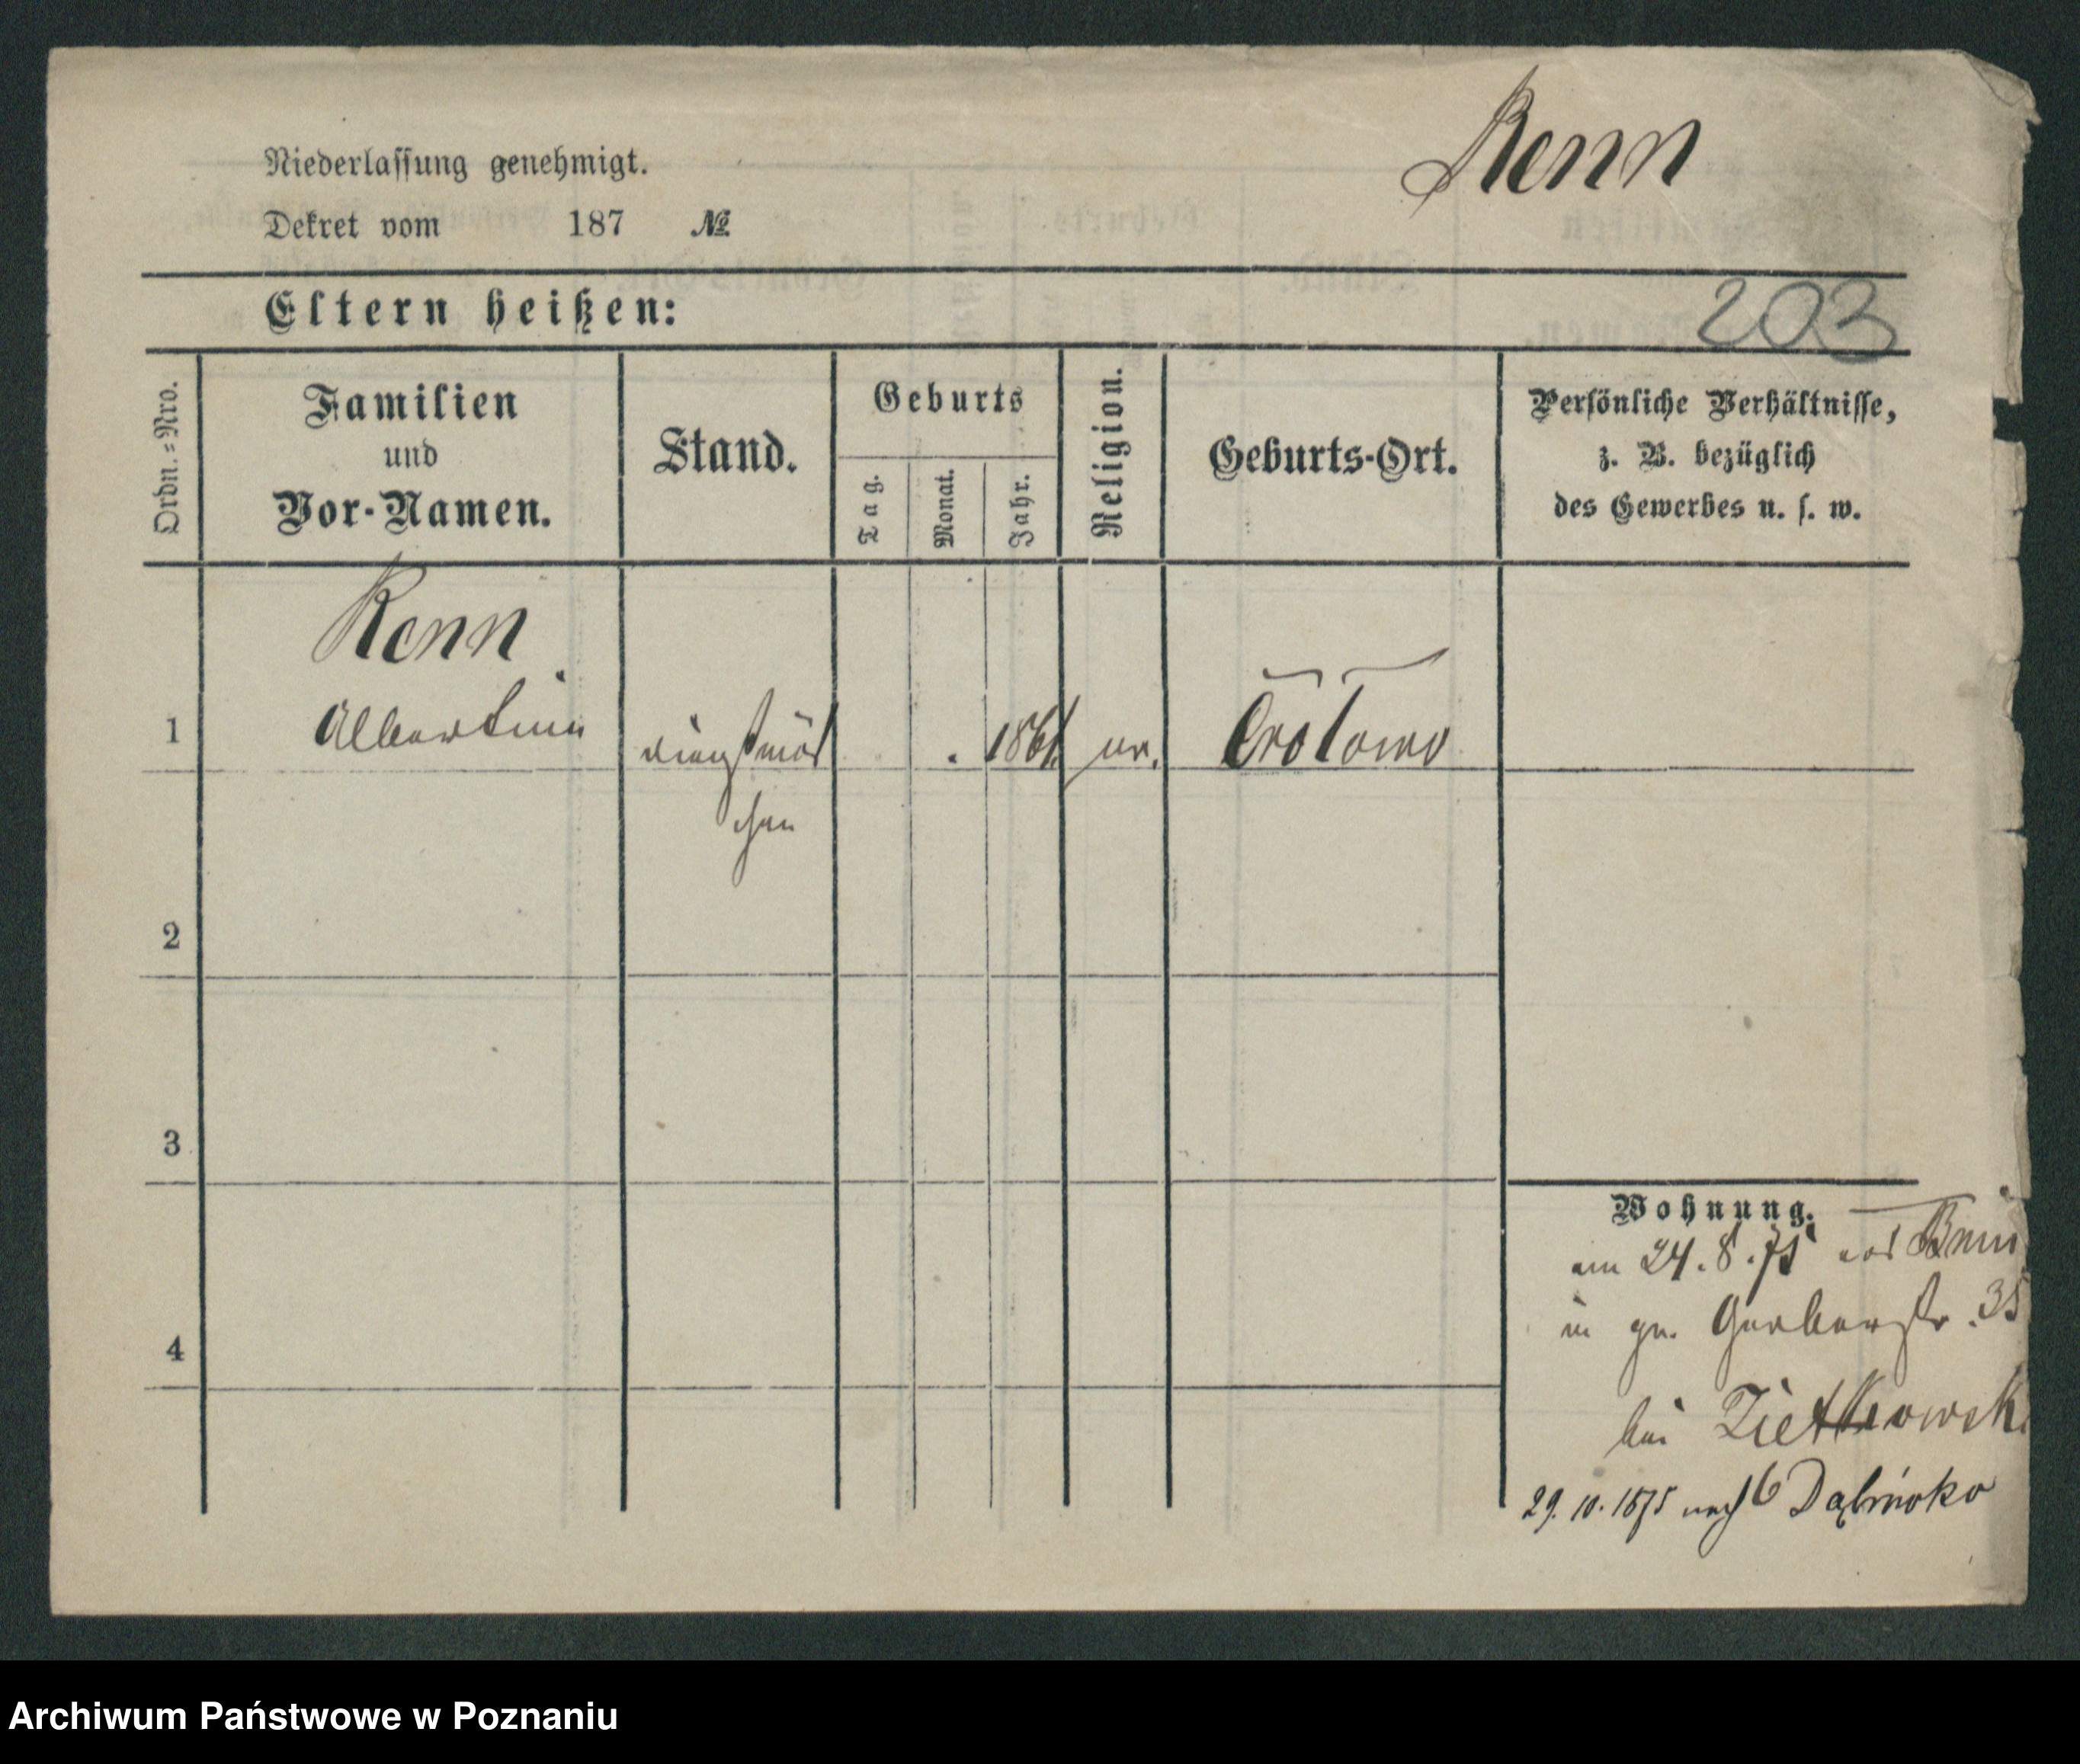 Renn
Niederlassung genehmigt.
Dekret vom 187 №
Eltern heißen:
203
Ordn.-Nro.
Familien
und
Vor-Namen.
Stand.
Geburts
Tag.
Monat.
Jahr.
Religion.
Geburts-Ort.
Persönliche Verhältnisse,
z. B. bezüglich
des Gewerbes u. s. w.
Renn
1 Albertine 1861
chen
2
3
4
Wohnung.
am 24.8.75 aus Bnin
in gr. Gerberstr. 35
bei
29.10.1875 nach
Archiwum Państwowe w Poznaniu